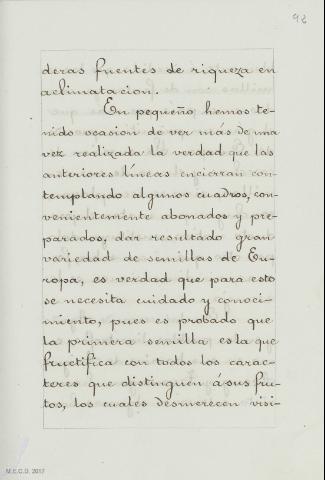 92
deras fuentes de riqueza en
aclimatacion.
En pequeño hemos te-
nido ocasion de ver más de una
vez realizada la verdad que las
anteriores líneas encierran con-
templando algunos cuadros, con-
venientemente abonados y pre-
parados, dar resultado gran
variedad de semillas de Eu-
ropa, es verdad que para esto
se necesita cuidado y conoci-
miento, pues es probado que
la primera semilla es la que
fructifica con todos los carac-
teres que distinguen á sus fru-
tos, los cuales desmerecen visi-
M.E.C.D. 2017